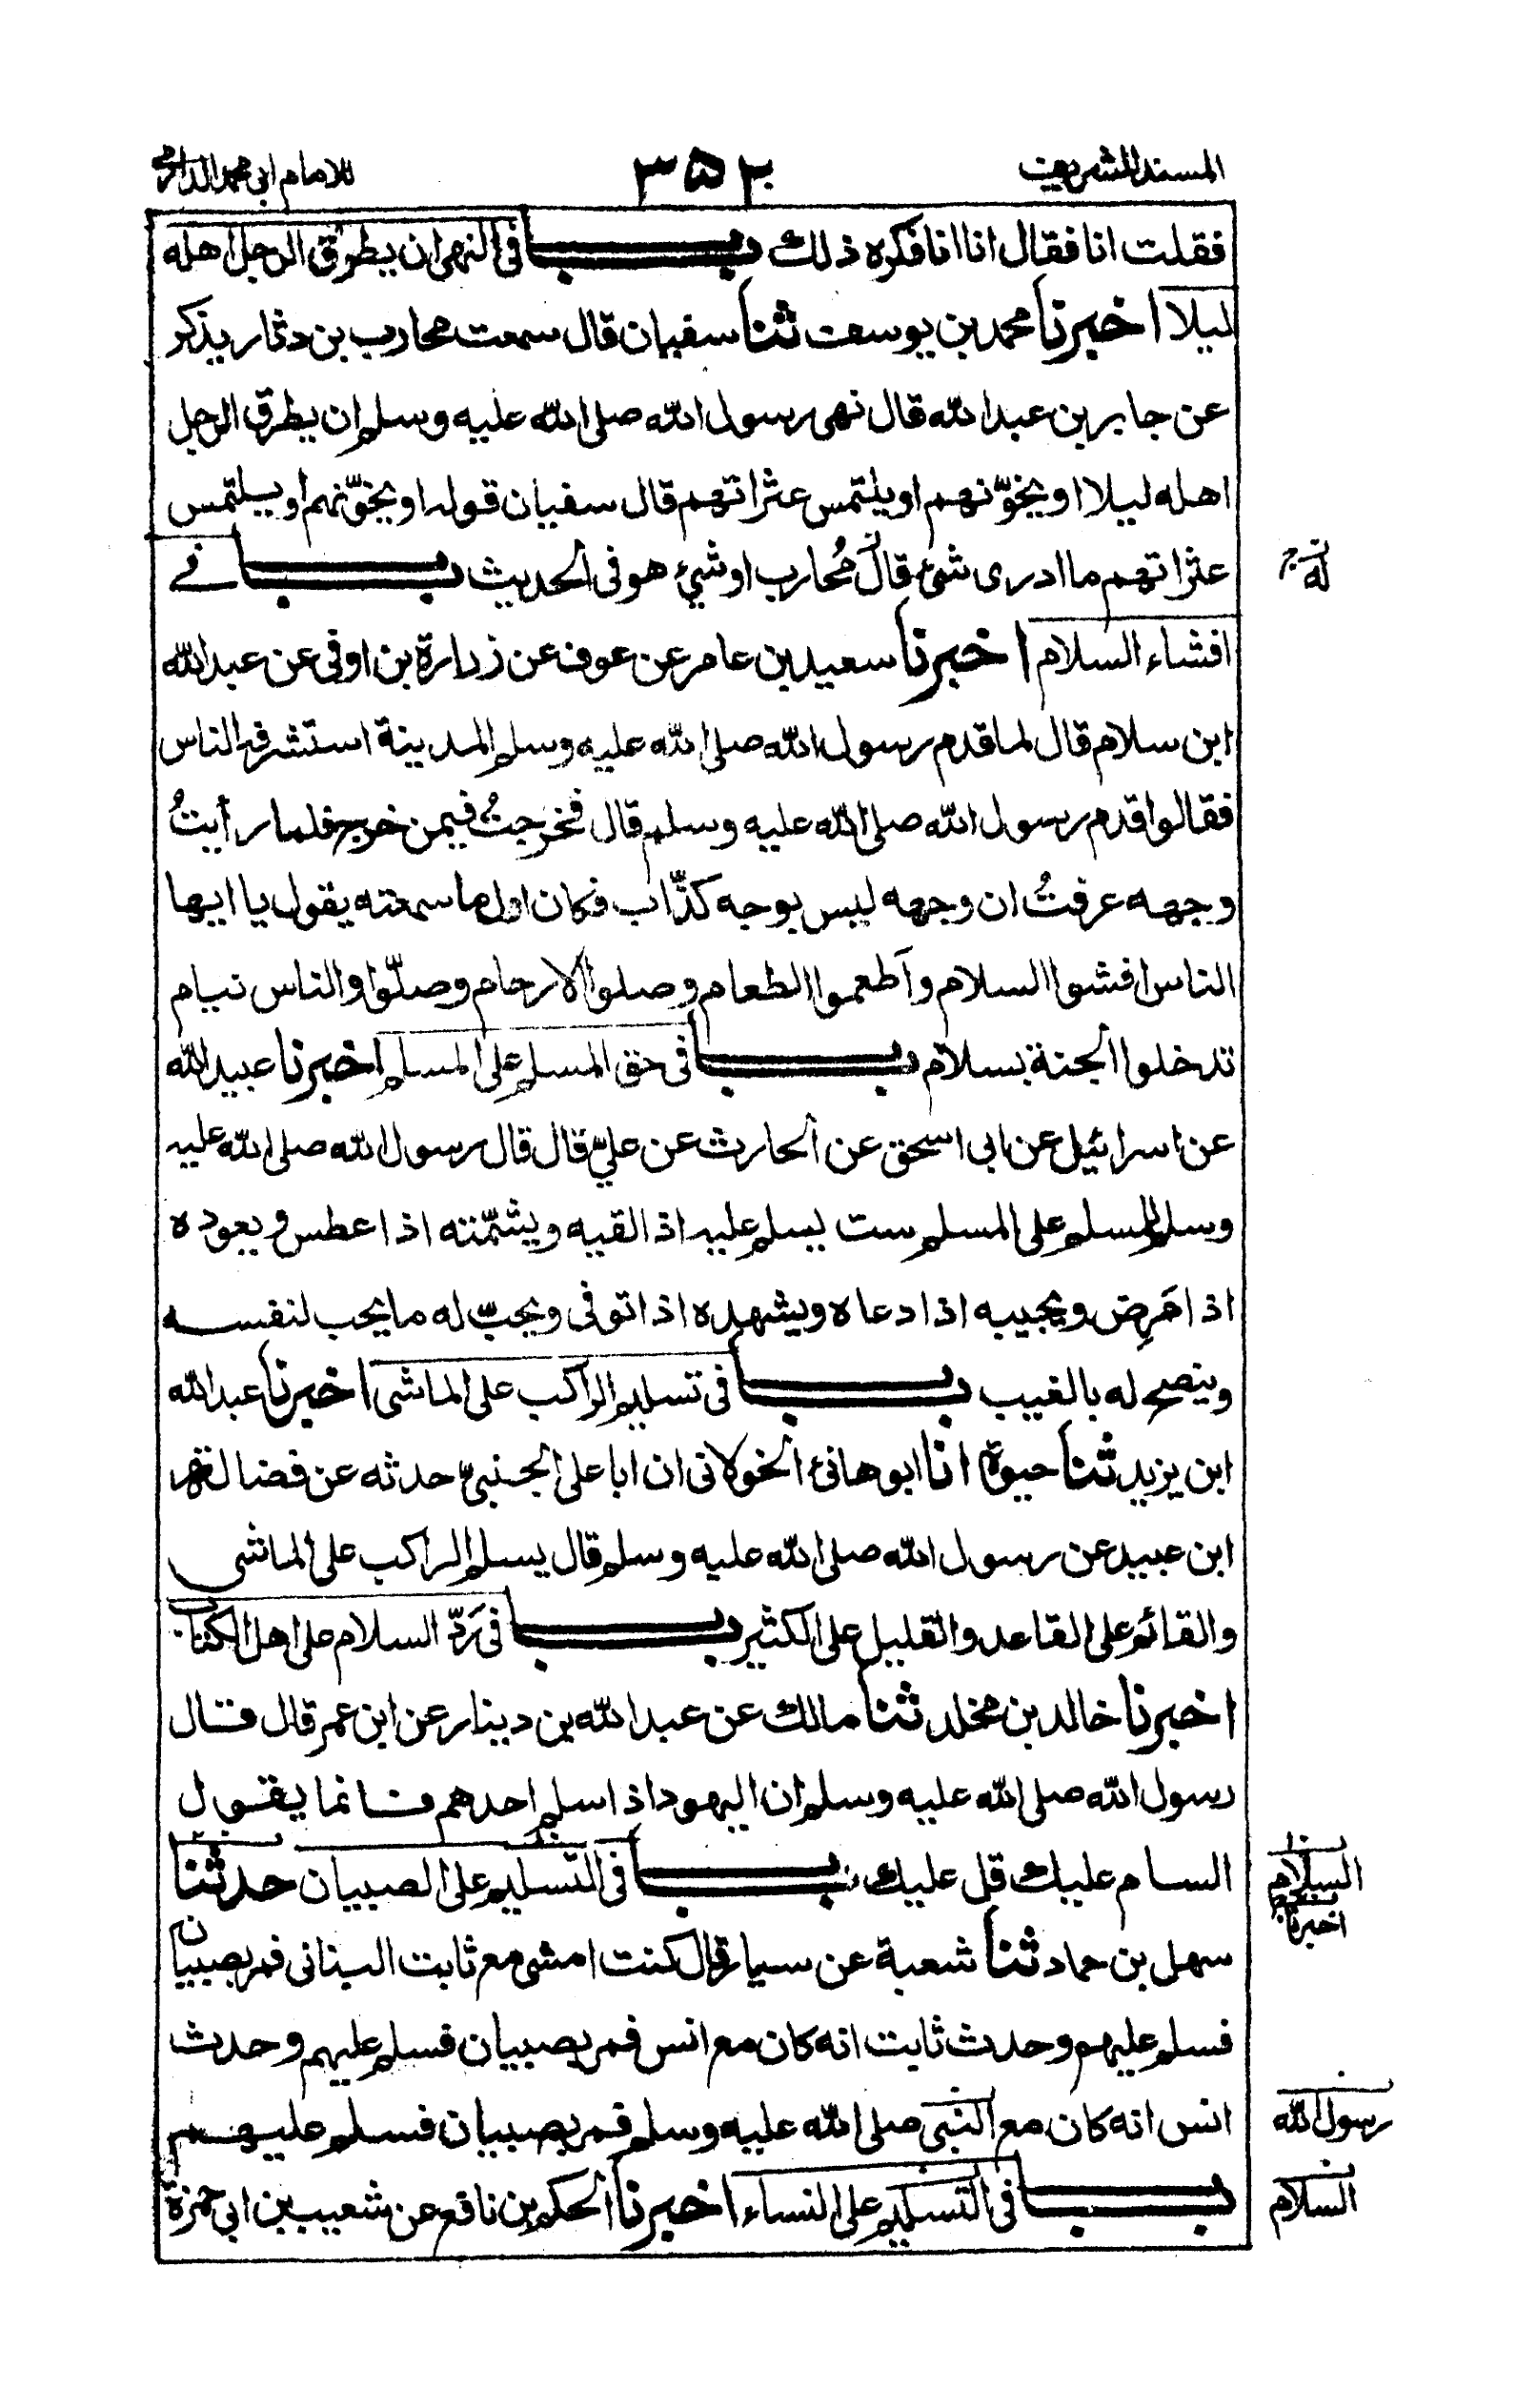 المسند الشريف ٣٥٢ للامام ابی محمد الدارمی
فقلت انا فقال انا انا فكره ذلك باب فی النهی ان يطرق الرجل اهله
ليلا اخبرنا محمد بن يوسف ثنا سفيان قال سمعت محارب بن دثار يذكر
عن جابر بن عبد الله قال نهی رسول الله صلی الله عليه وسلم ان يطرق الرجل
اهله ليلا او يخوّنهم او يلتمس عثراتهم قال سفيان قوله او يخوّنهم او يلتمس
عثراتهم ما ادری شئ قال مُحارب او شیء هو فی الحديث باب فے
له
افشاء السلام اخبرنا سعيد بن عامر عن عوف عن زرارة بن اوفی عن عبد الله
ابن سلام قال لما قدم رسول الله صلی الله عليه وسلم المدينة استشرفه الناس
فقالوا قدم رسول الله صلی الله عليه وسلم قال فخرجتُ فيمن خرج فلما رأيتُ
وجهه عرفتُ ان وجهه ليس بوجه كذّاب فكان اول ما سمعته يقول يا ايها
الناس افشوا السلام وأطعموا الطعام وصلوا الارحام وصلّوا والناس نيام
تدخلوا الجنة بسلام باب فی حق المسلم علی المسلم اخبرنا عبيد الله
عن اسرائيل عن ابی اسحق عن الحارث عن علیّ قال قال رسول الله صلی الله عليه
وسلم للمسلم علی المسلم ست يسلم عليه اذا لقيه ويشمّته اذا عطس ويعوده
اذا مَرِض ويجيبه اذا دعاه ويشهده اذا توفی ويحبّ له ما يحب لنفسه
وينصح له بالغيب باب فی تسليم الراكب علی الماشی اخبرنا عبد الله
ابن يزيد ثنا حيوة انا ابو هانئ الخولانی ان ابا علی الجنبیّ حدثه عن فضالة
ابن عبيد عن رسول الله صلی الله عليه وسلم قال يسلم الراكب علی الماشی
والقائم علی القاعد والقليل علی الكثير باب فی رَدّ السلام علی اهل الكتاب
اخبرنا خالد بن مخلد ثنا مالك عن عبد الله بن دينار عن ابن عمر قال قال
رسول الله صلی الله عليه وسلم ان اليهود اذا سلم احدهم فانما يقول
السام عليك قل عليك باب فی التسليم علی الصبيان حدثنا
السلام
اخبرنا
سهل بن حماد ثنا شعبة عن سيار قال كنت امشی مع ثابت البنانی فمر بصبيان
فسلم عليهم وحدث ثابت انه كان مع انس فمر بصبيان فسلم عليهم وحدث
انس انه كان مع النبی صلی الله عليه وسلم فمر بصبيان فسلم عليهم
رسول الله
باب فی التسليم علی النساء اخبرنا الحكم بن نافع عن شعيب بن ابی حمزة
السلام